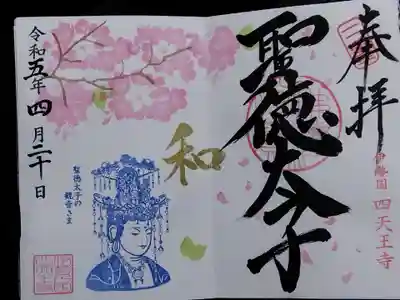 奉拝
聖徳太子
伊勢国 四天王寺
和
聖徳太子の
観音さま
令和五年四月二十日